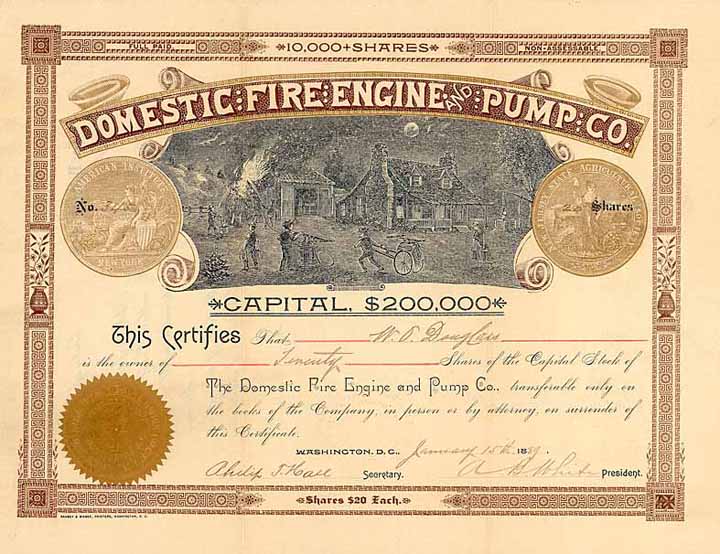 FULL PAID
10,000 SHARES
NON-ASSESSABLE
DOMESTIC FIRE ENGINE AND PUMP CO.
AMERICAN INSTITUTE
NEW YORK
STATE AGRICULTURAL
No.
20 Shares
CAPITAL, $200,000
This Certifies That W. O. Douglass
is the owner of Twenty Shares of the Capital Stock of
The Domestic Fire Engine and Pump Co., transferable only on
the books of the Company, in person or by attorney, on surrender of
this Certificate.
WASHINGTON, D.C., January 15th 1889.
Philip T. Hall Secretary. A B White President.
Shares $20 Each.